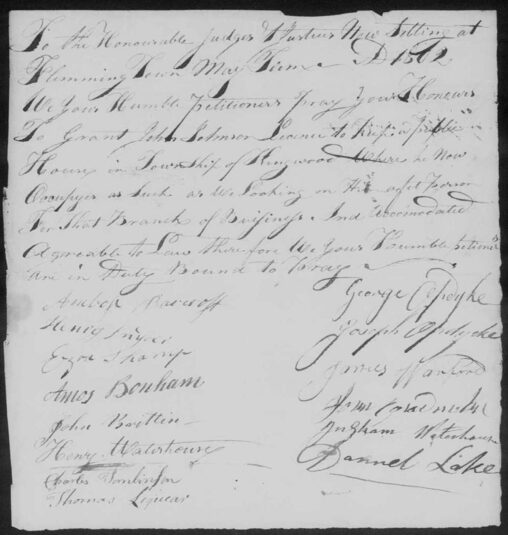 To the Honourable Judges & Justices Now Sitting at
Flemming Town May Term AD 1802
We Your Humble Petitioners Pray Your Honours
To Grant John Johnson Licence to Keep a Publick
House in Township of Kingwood Where he Now
Occupyes as Such as We Looking on him a fit Person
For that Branch of Buisiness And
Agreable to Law therefore We Your Humble Petitioners
are in Duty Bound to Pray
George Opdyke
Henry Snyder
Joseph Opdycke
Ezra Tharp
James
Amos Bonham
John Brittin
Ingham Waterhouse
Henry Waterhouse
Daniel Lake
Charles Tomlinson
Thomas